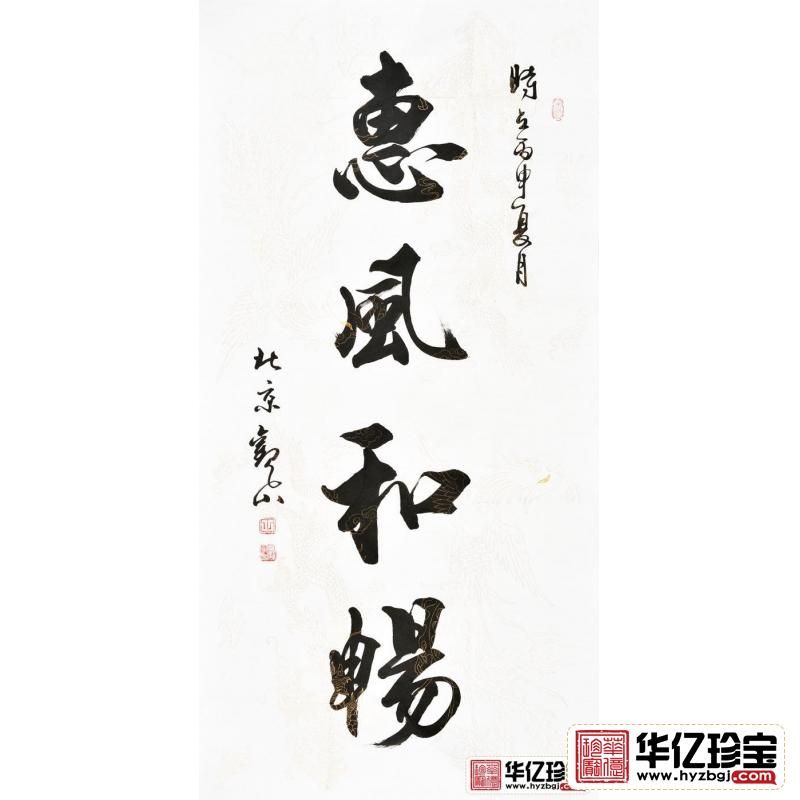 惠風和暢
時在丙申夏月
北京
山
华亿珍宝
www.hyzbgj.com
华亿珍宝
www.hyzbgj.com